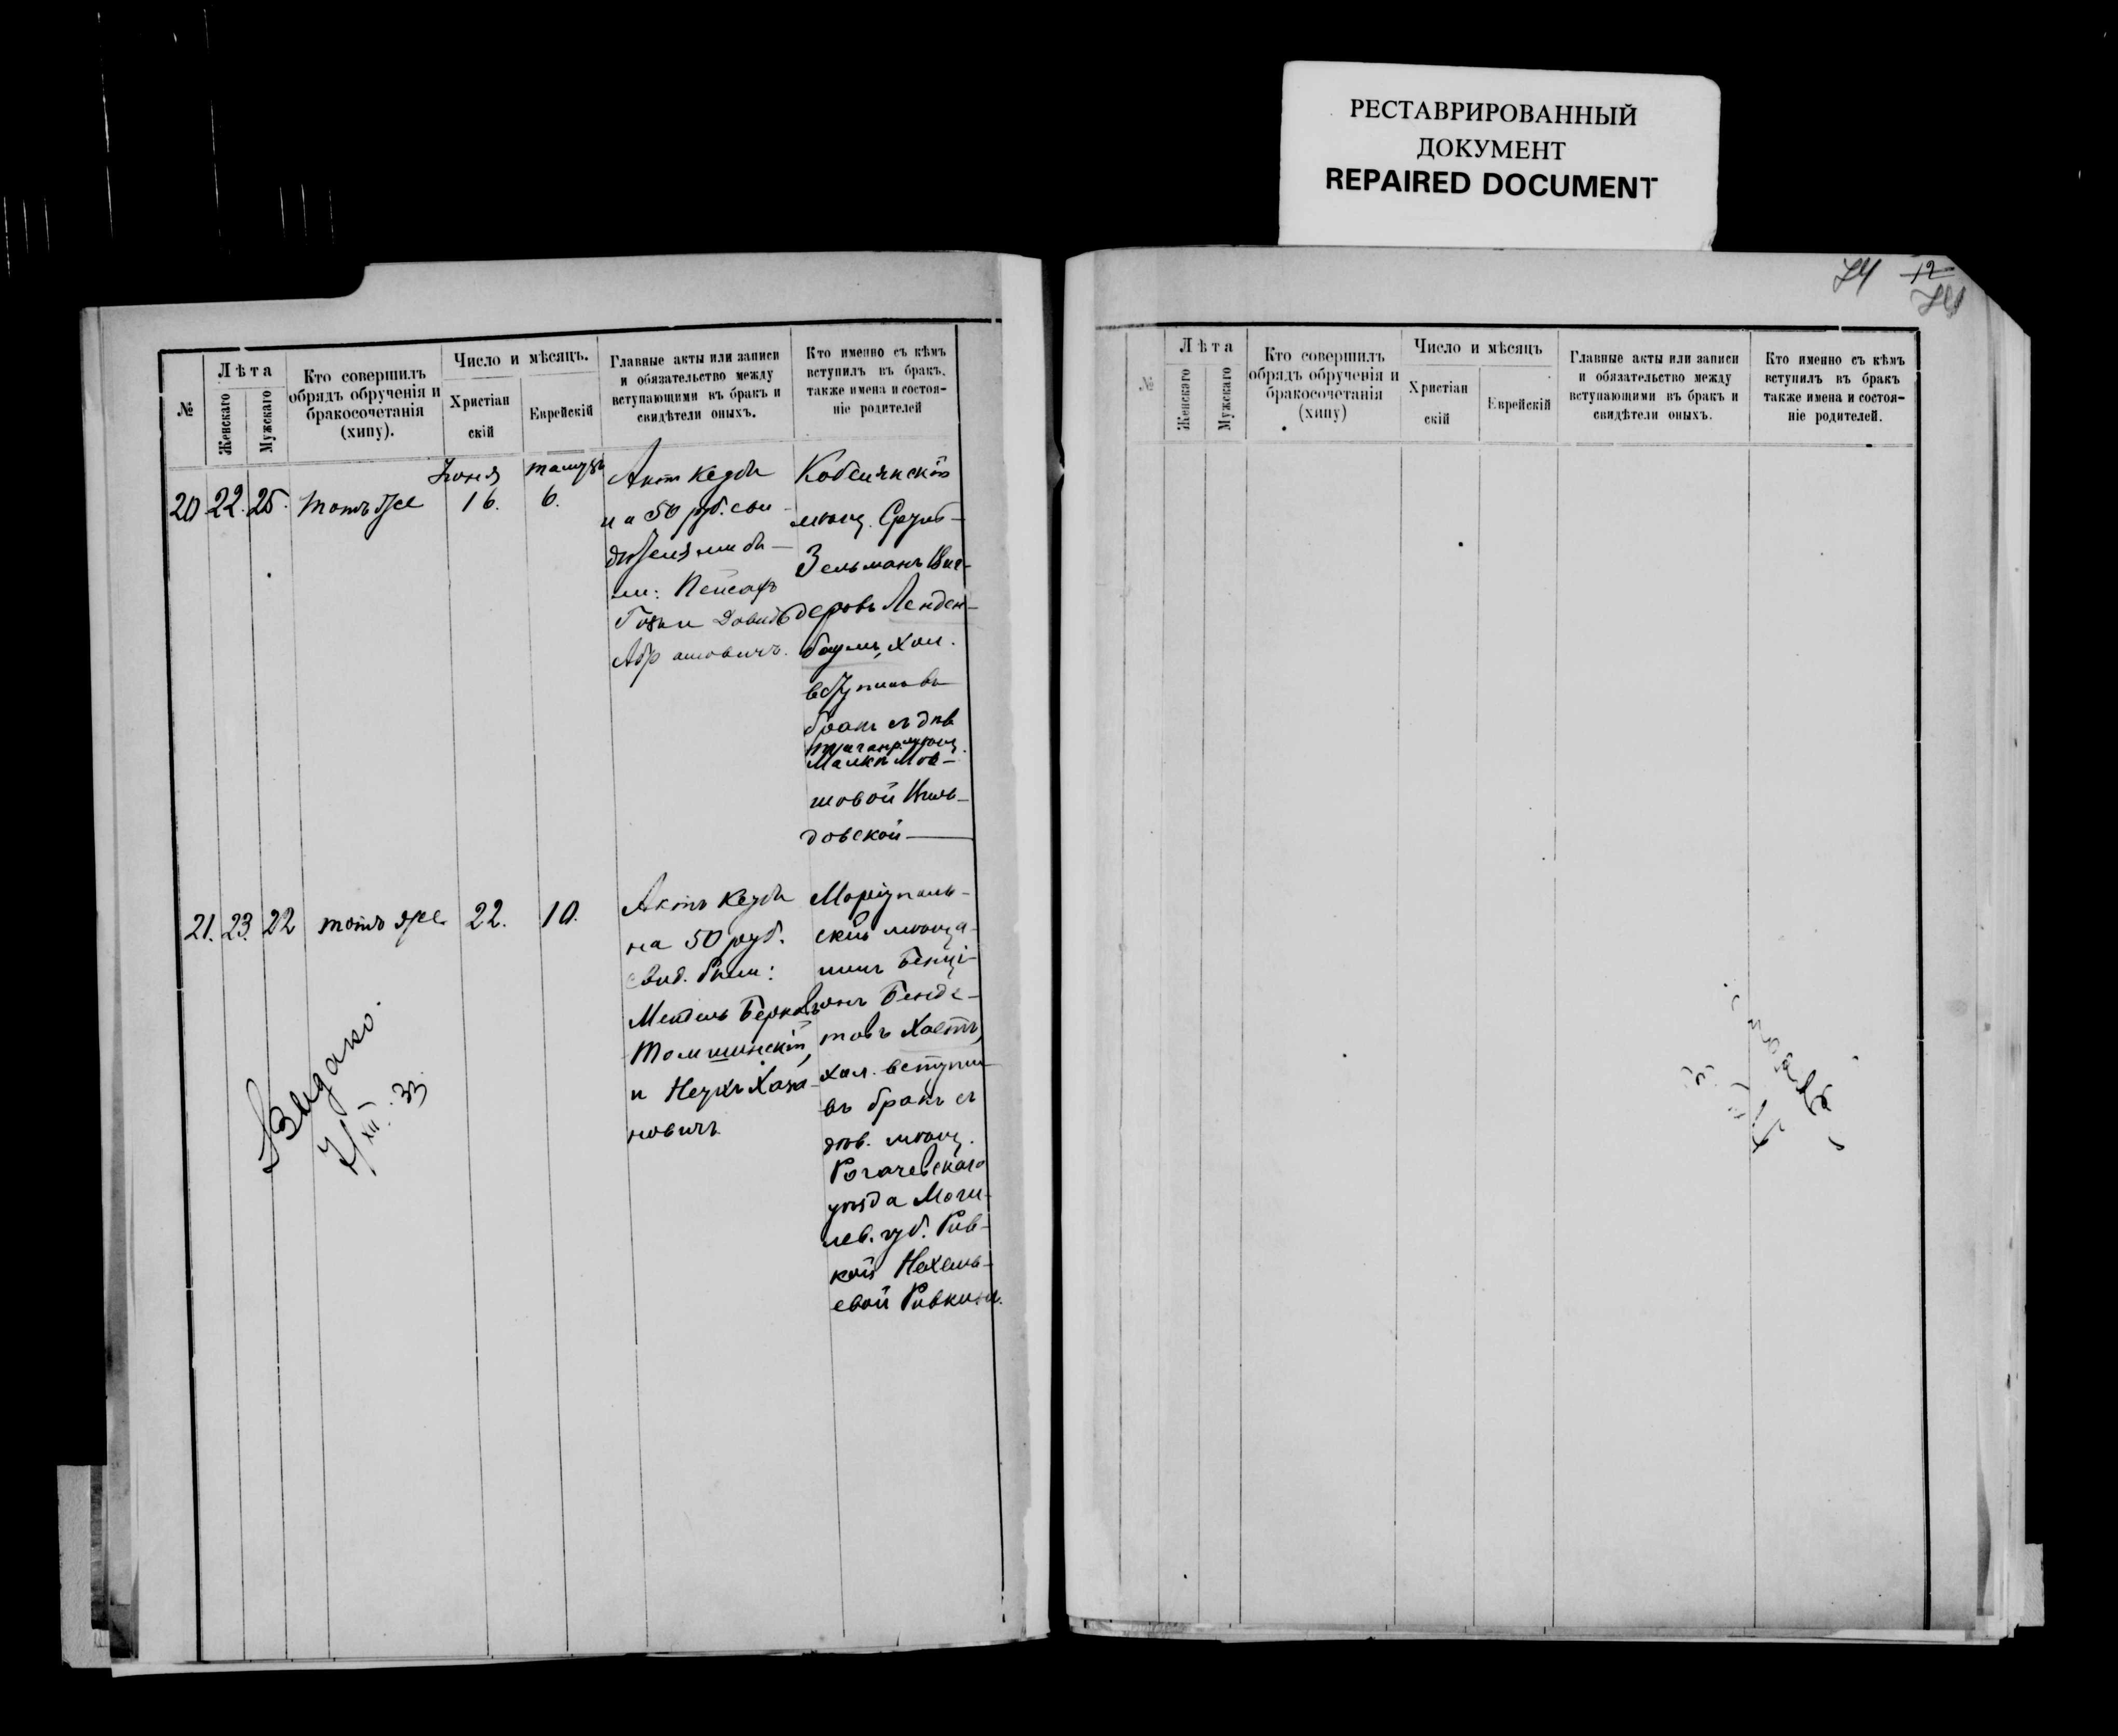 РЕСТАВРИРОВАННЫЙ
ДОКУМЕНТ
REPAIRED DOCUMENT
74 12
№
Лѣта
Женскаго
Мужскаго
Кто совершилъ
обрядъ обрученія и
бракосочетанія
(хипу).
Число и мѣсяцъ.
Христіан
скій
Еврейскій
Главные акты или записи
и обязательство между
вступающими въ бракъ и
свидѣтели оныхъ.
Кто именно съ кѣмъ
вступилъ въ бракъ.
также имена и состоя-
ніе родителей
20
22.
25.
тотъ же
Іюня
16.
тамузъ
6.
на 50 руб. сви
дѣтелями бы-
ли: Пейсахъ
Абрамовичъ.
мѣщ. Сруль-
Зельманъ
баумъ, хол.
вступилъ въ
бракъ съ дѣв
Малкой Мов-
шовой
довской
21.
23.
22
тотъ же
22.
10.
Актъ
на 50 руб.
свид. были:
Мендель Берковъ
Томшинскій,
и Неухъ Хаза-
новичъ.
Маріуполь-
скій мѣща-
нинъ Бенці-
онъ Бенде-
товъ Хаетъ,
хол. вступил
въ бракъ съ
дѣв. мѣщ.
Рогачевскаго
уѣзда Моги-
лев. губ. Рив-
кой Нехемь-
евой Ривкина.
Выдано.
7/XII. 33.
№
Лѣта
Женскаго
Мужскаго
Кто совершилъ
обрядъ обрученія и
бракосочетанія
(хипу)
Число и мѣсяцъ
Христіан
скій
Еврейскій
Главные акты или записи
и обязательство между
вступающими въ бракъ и
свидѣтели оныхъ.
Кто именно съ кѣмъ
вступилъ въ бракъ
также имена и состоя-
ніе родителей.